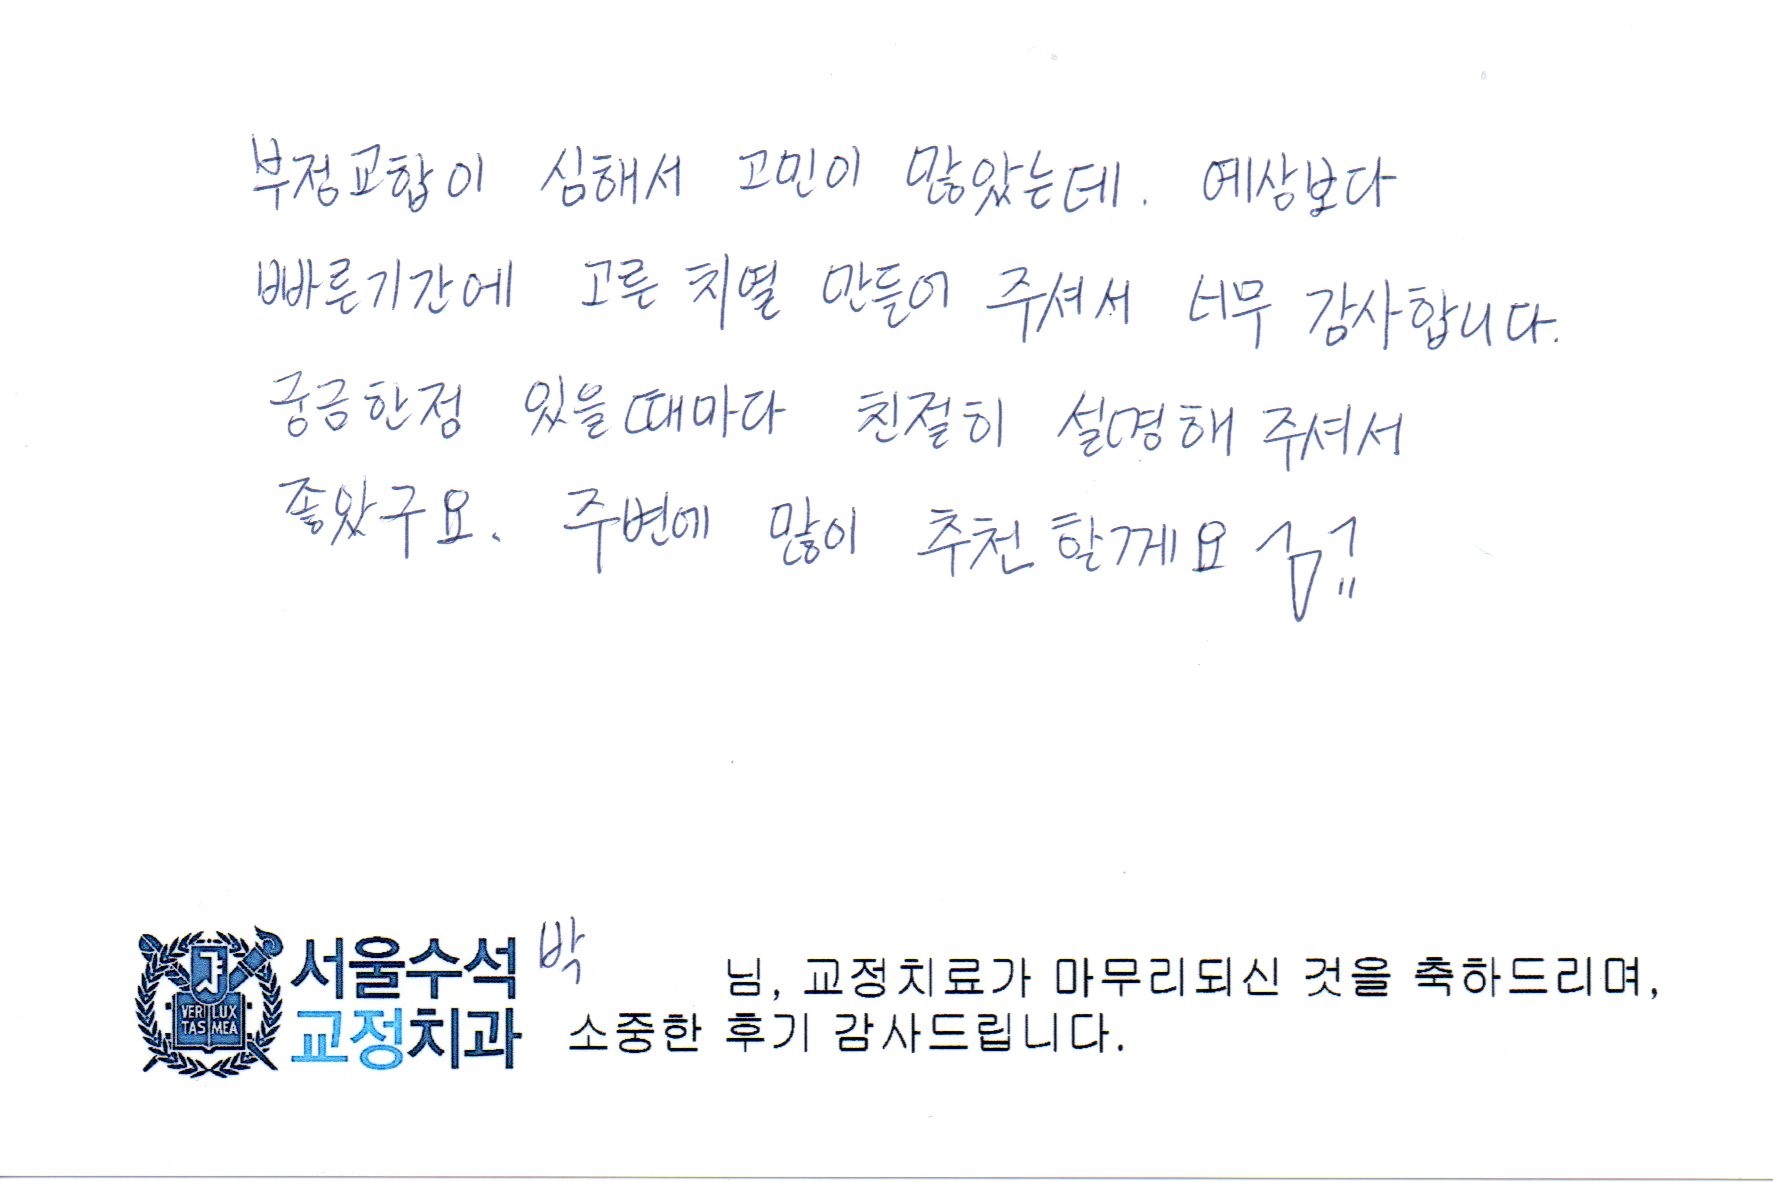 부정교합이 심해서 고민이 많았는데. 예상보다
빠른기간에 고른 치열 만들어 주셔서 너무 감사합니다.
궁금한점 있을때마다 친절히 설명해 주셔서
좋았구요. 주변에 많이 추천할께요
서울수석
교정치과
VERI LUX
TAS MEA
박 님, 교정치료가 마무리되신 것을 축하드리며,
소중한 후기 감사드립니다.